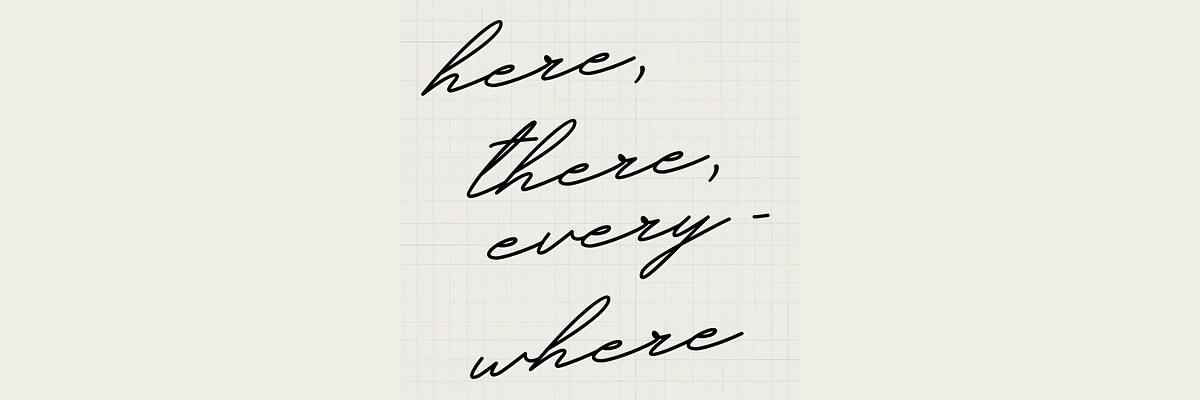 here,
there,
every-
where